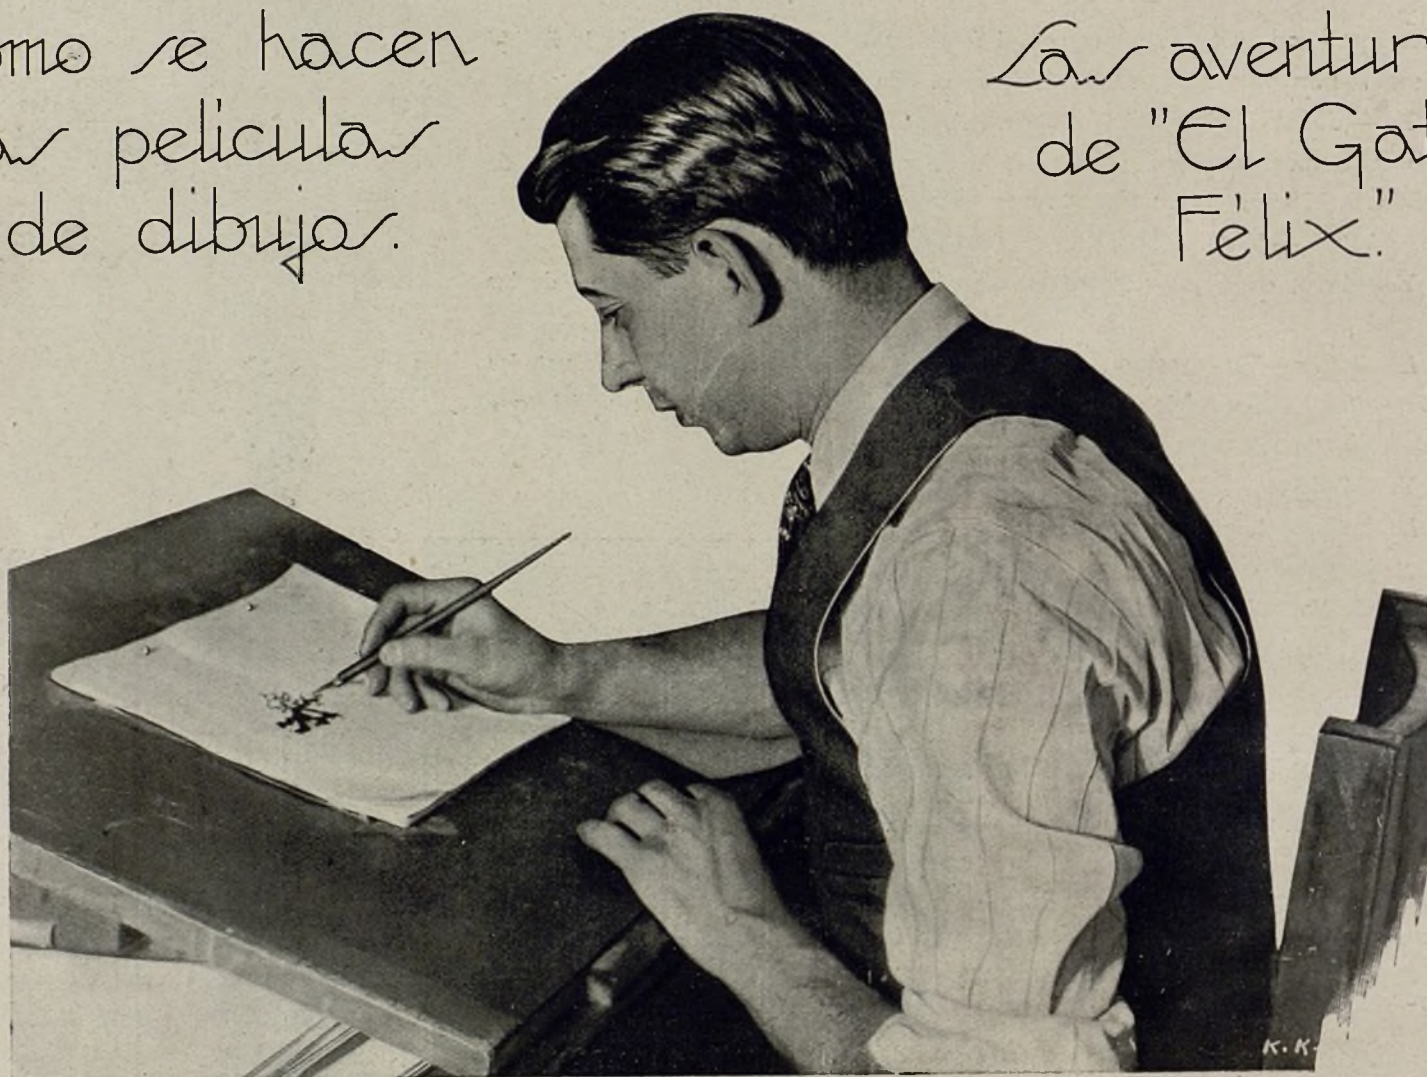 omo se hacen
as peliculas
de dibujos.
Las aventur
de "El Gat
Félix."
K. K.